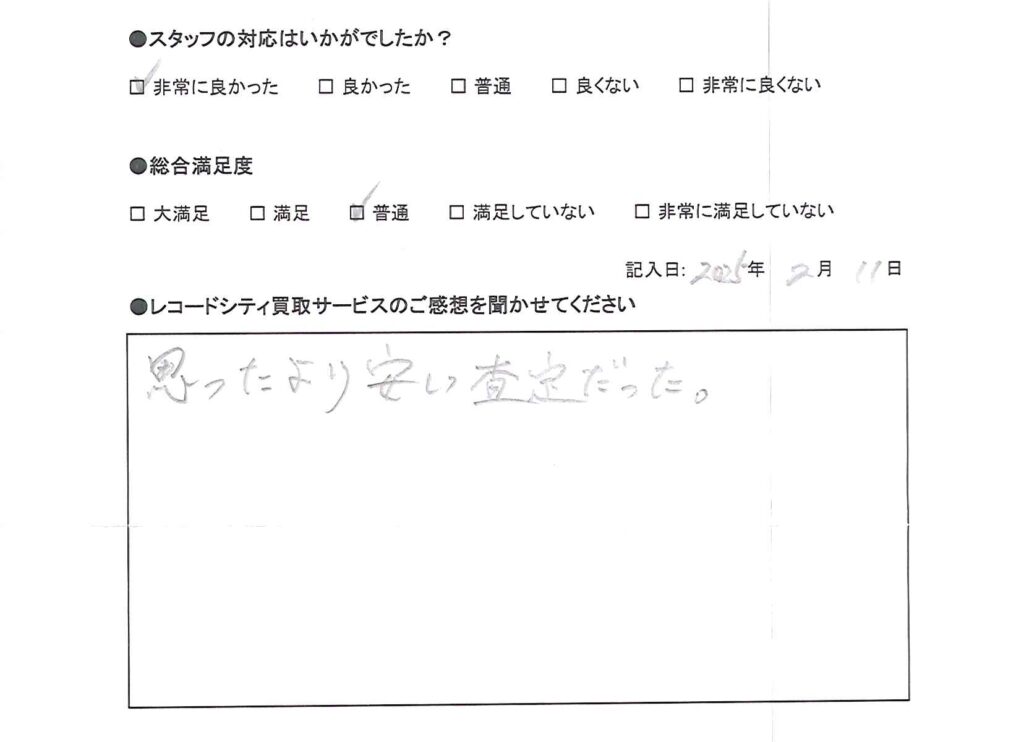 ●スタッフの対応はいかがでしたか？
☑ 非常に良かった □ 良かった □ 普通 □ 良くない □ 非常に良くない
●総合満足度
□ 大満足 □ 満足 ☑ 普通 □ 満足していない □ 非常に満足していない
記入日: 2025年 2月 11日
●レコードシティ買取サービスのご感想を聞かせてください
思ったより安い査定だった。